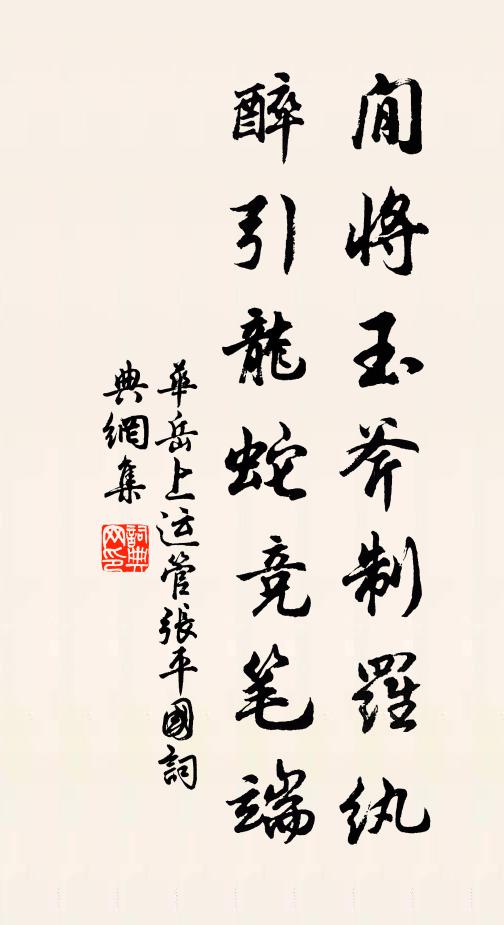 閒將玉斧制羅紈
醉引龍蛇竞笔端
華岳上运管張平國詞
典網集
詞典
网印